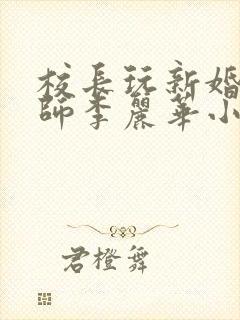 校長玩新婚
師李麗華小
君橙舞